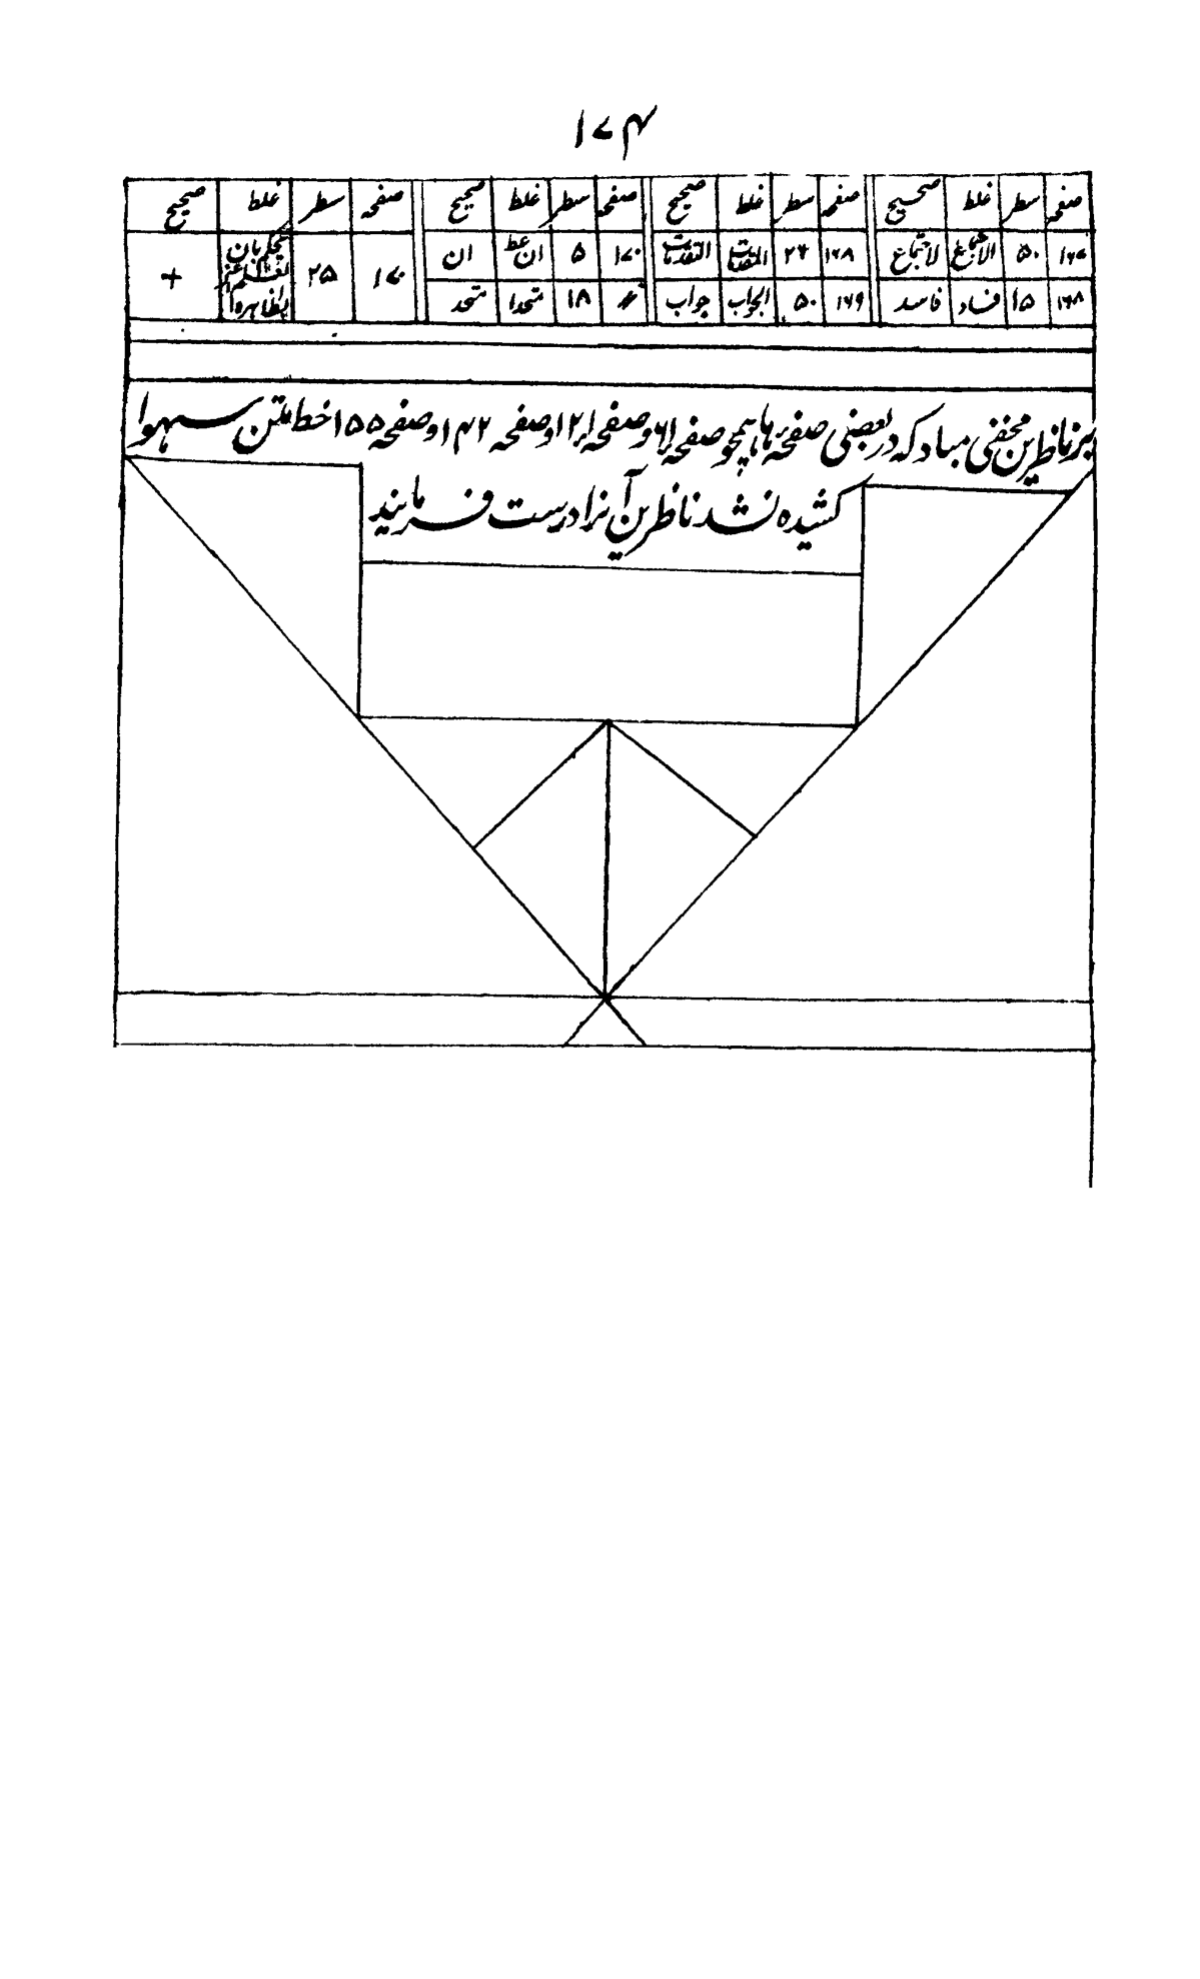 ۱۷۴
صفحہ سطر غلط صحیح صفحہ سطر غلط صحیح صفحہ سطر غلط صحیح صفحہ سطر غلط صحیح
۱۶۷ ۵۰ الاجتماع لاجتماع ۱۶۸ ۲۴ المقدمات التقدمات ۱۷۰ ۵ ان عط ان ۱۷۰ ۲۵ +
۱۶۸ ۱۵ فساد فاسد ۱۶۹ ۵۰ الجواب جواب // ۱۸ متحدا متحد
بر ناظرین مخفی مباد که در بعضی صفحہ ہا ہمچو صفحہ وصفحہ ۱۲۱ وصفحہ ۱۴۲ وصفحہ ۱۵۵ خط متن سہوا
کشیده نشد ناظرین آنرا درست فرمایند